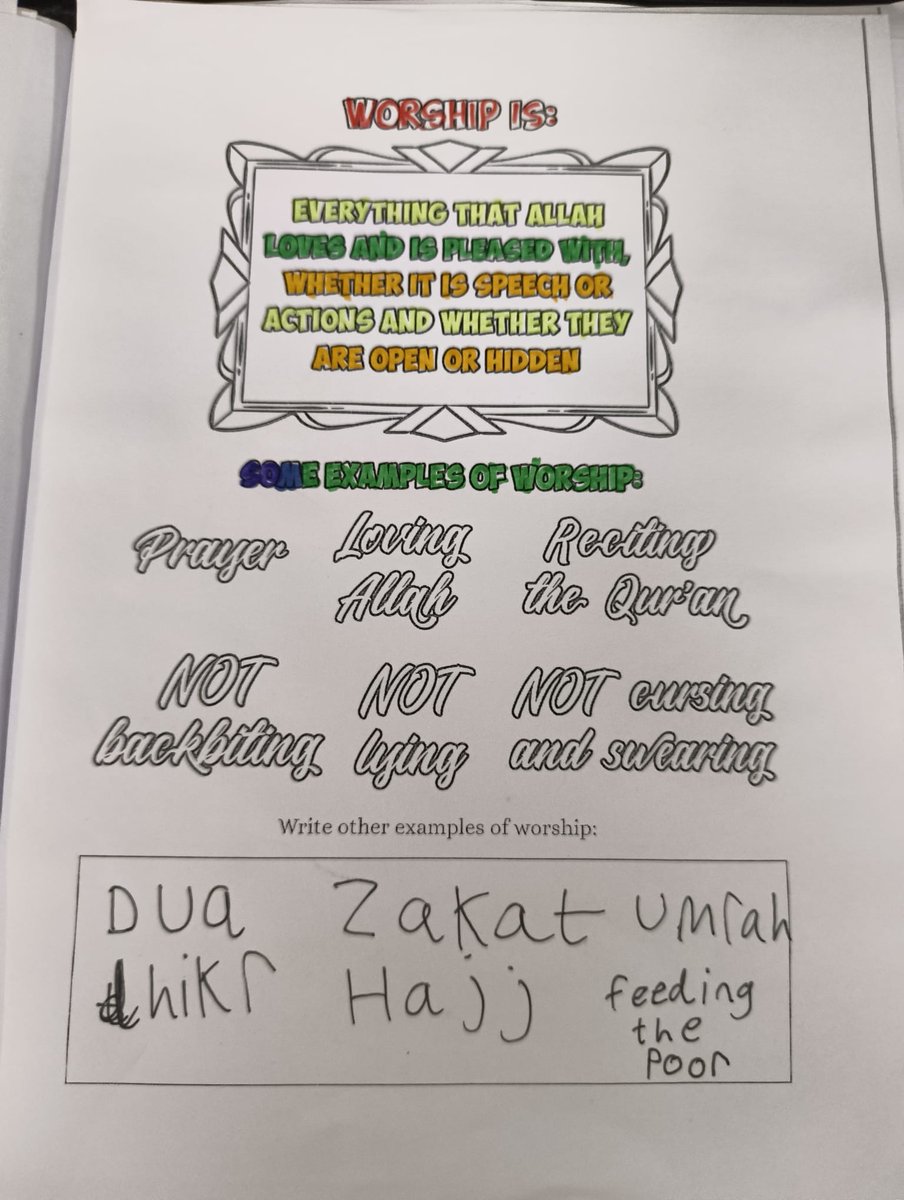 WORSHIP IS:
EVERYTHING THAT ALLAH
LOVES AND IS PLEASED WITH,
WHETHER IT IS SPEECH OR
ACTIONS AND WHETHER THEY
ARE OPEN OR HIDDEN
SOME EXAMPLES OF WORSHIP:
Prayer
Loving
Allah
Reciting
the Qur'an
NOT
backbiting
NOT
lying
NOT cursing
and swearing
Write other examples of worship:
DUa Zakat Umrah
dhikr Hajj feeding
the
poor